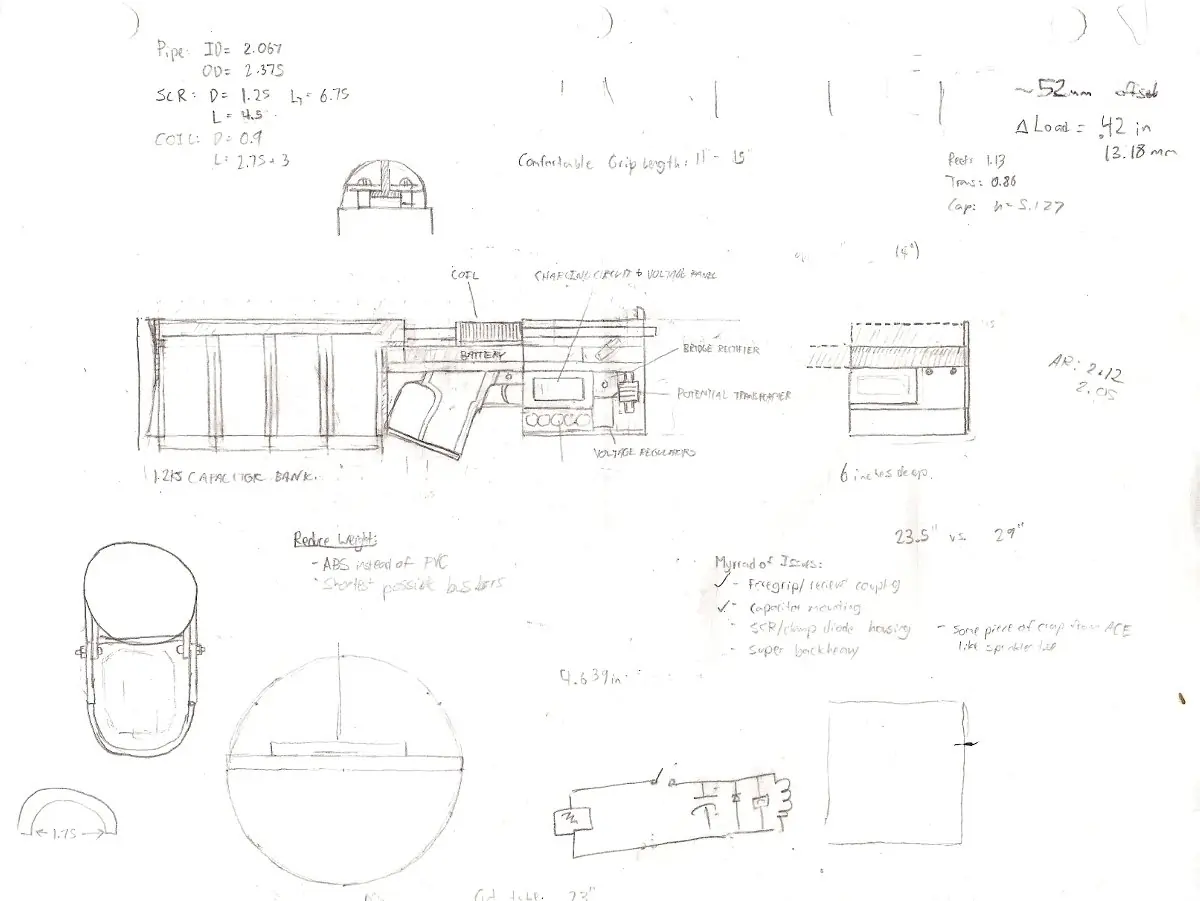 Pipe: ID = 2.067
OD = 2.375
SCR: D = 1.25 L₂ = 6.75
L = 4.5
COIL: D = 0.9
L = 2.75 + 3
~52mm offset
Δ Load = .42 in
13.18 mm
Comfortable Grip Length: 11" - 15"
Rect: 1.13
Trans: 0.86
Cap: h = 5.127
(4")
COIL
CHARGING CIRCUIT & VOLTAGE PANEL
BATTERY
BRIDGE RECTIFIER
POTENTIAL TRANSFORMER
VOLTAGE REGULATORS
AR: 2.12
2.05
CAPACITOR BANK.
6 inches deep.
23.5" vs. 29"
Reduce Weight:
- ABS instead of PVC
- Shortest possible busbars
Myriad of Issues:
✓ - Foregrip/receiver coupling
✓ - Capacitor mounting
- SCR/clamp diode housing
- Some piece of crap from ACE
like sprinkler
- Super backheavy
4.639in
1.75
23"